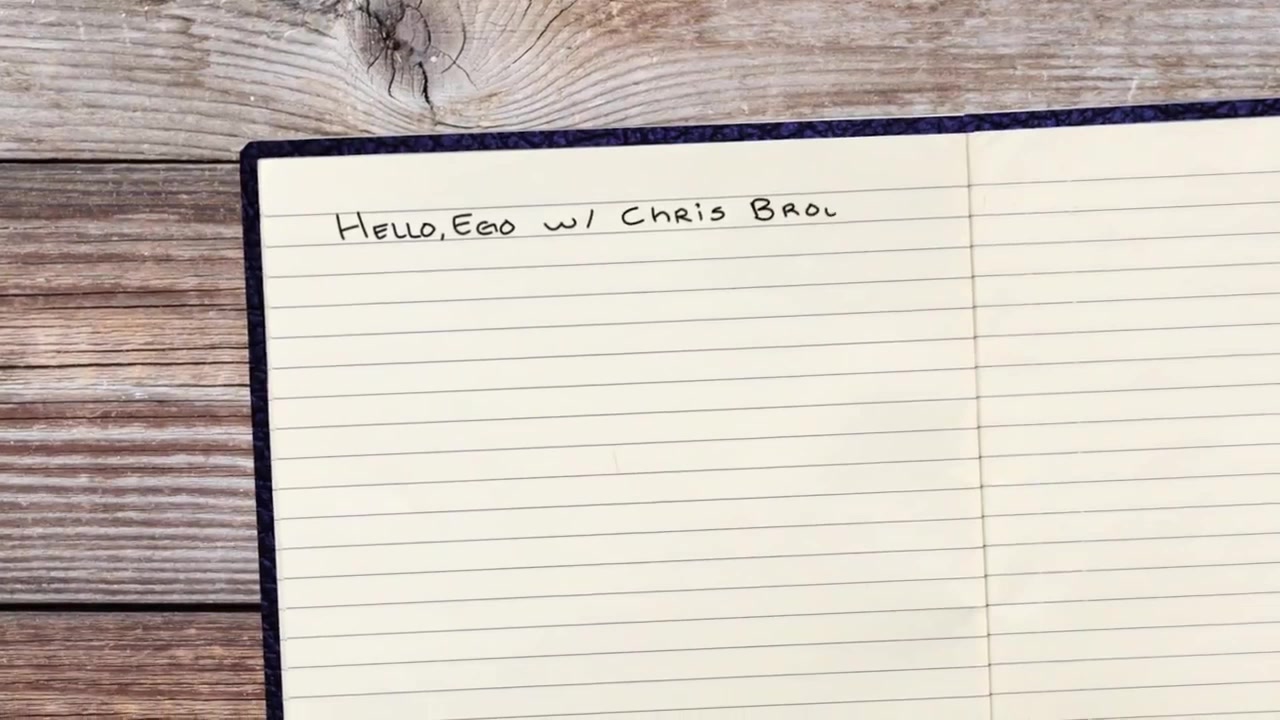 Hello, Ego w/ Chris Bro